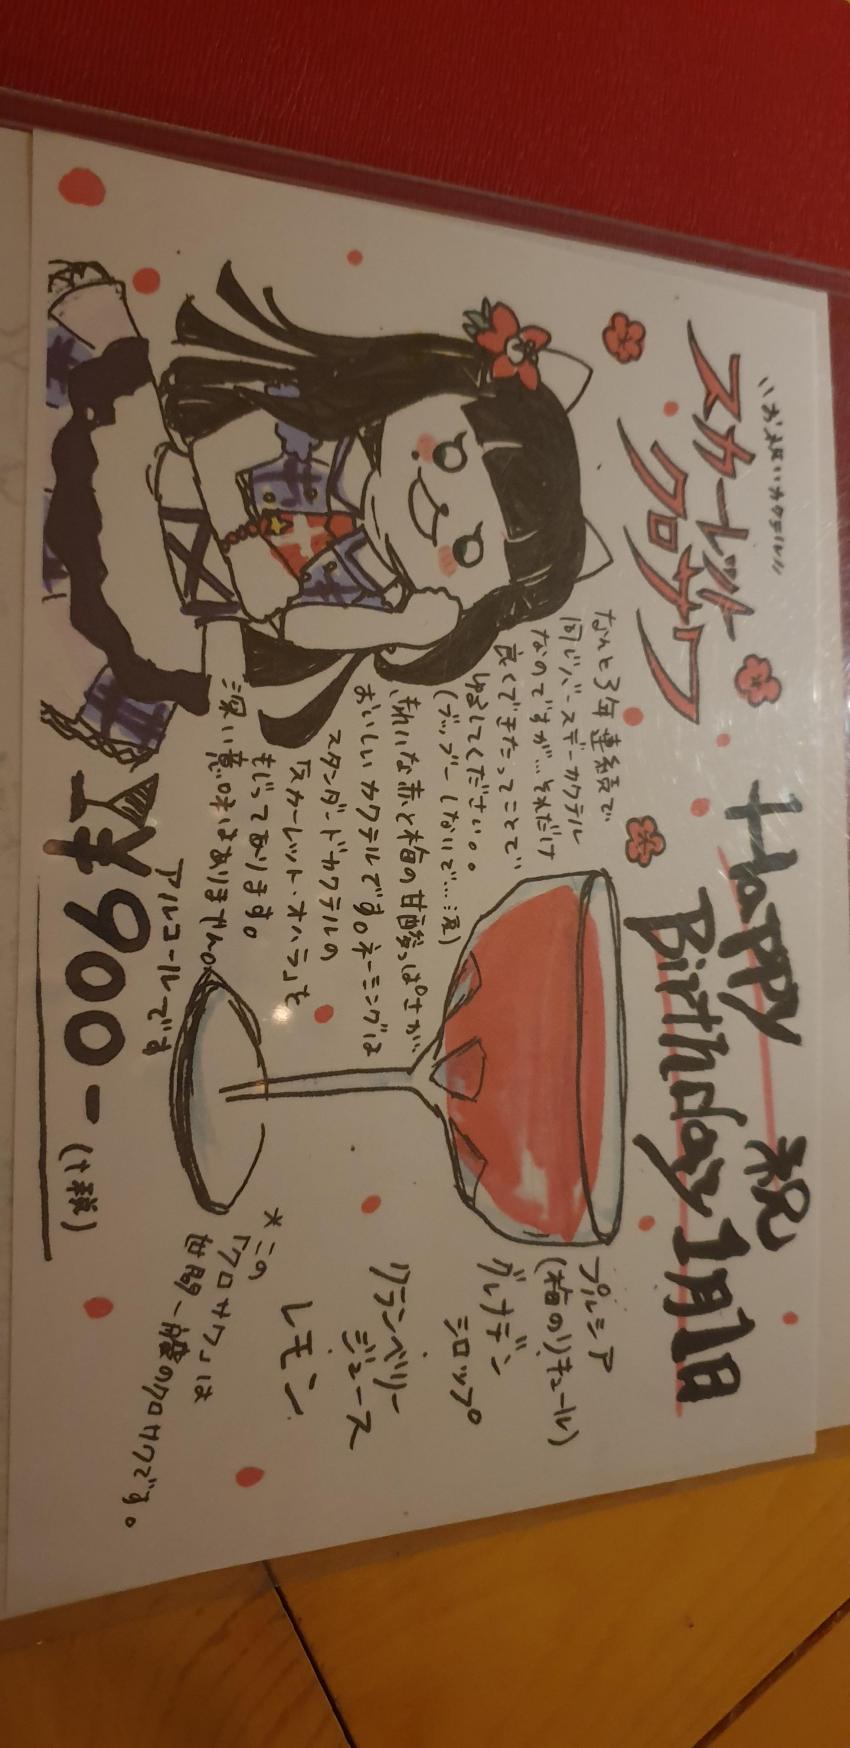 "お祝いカクテル"
スカーレット
クロサワ
Happy
Birthday
祝
1月1日
なんと3年連続で
同じバースデーカクテル
なのですが…それだけ
良くできたってことで
ゆるしてください。。
(ブーブーしないで…泣)
きれいな赤と梅の甘酸っぱさが
おいしいカクテルです。ネーミングは
スタンダードカクテルの
「スカーレット・オハラ」を
もじっております。
深い意味はありません。
プルシア
(梅のリキュール)
グレナデン
シロップ
クランベリー
ジュース
レモン
*この
「クロサワ」は
世界一般のクロサワです。
アルコールです
900-
(+税)